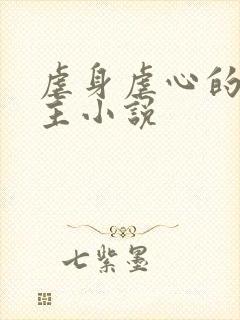 虐身虐心的
主小说
七紫墨